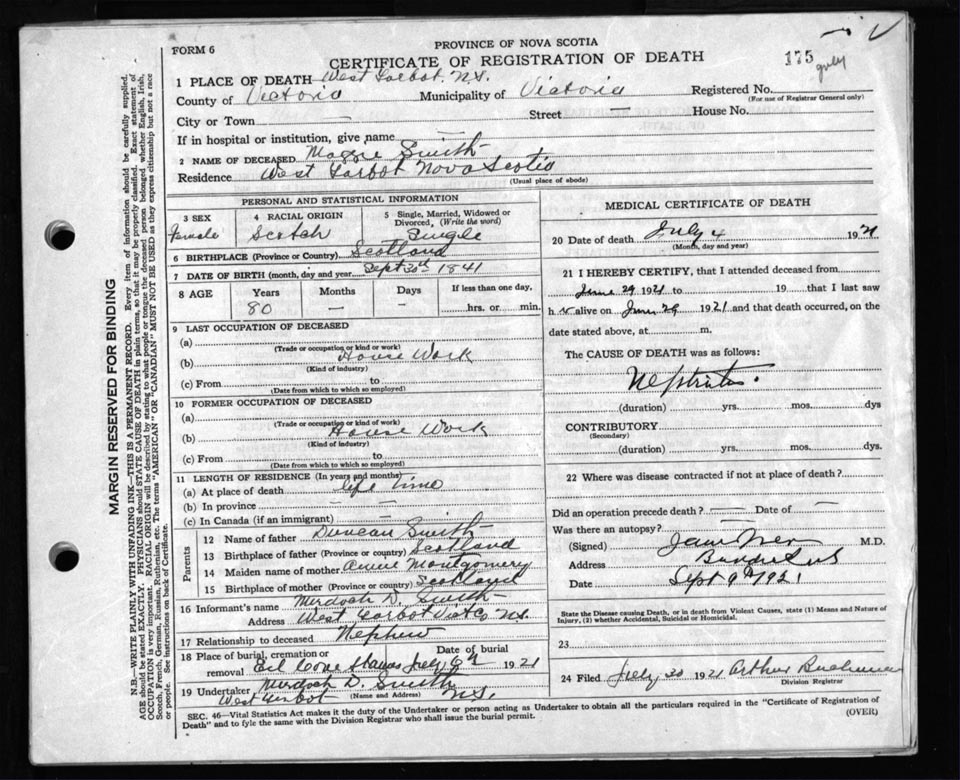 FORM 6
PROVINCE OF NOVA SCOTIA
CERTIFICATE OF REGISTRATION OF DEATH
175
July
1 PLACE OF DEATH West Tarbot. N.S.
County of Victoria Municipality of Victoria Registered No.
(For use of Registrar General only)
City or Town — Street — House No.
If in hospital or institution, give name —
2 NAME OF DECEASED Maggie Smith
Residence West Tarbot Nova Scotia
(Usual place of abode)
PERSONAL AND STATISTICAL INFORMATION
3 SEX 4 RACIAL ORIGIN 5 Single, Married, Widowed or Divorced, (Write the word)
Female Scotch Single
6 BIRTHPLACE (Province or Country) Scotland
7 DATE OF BIRTH (month, day and year) Sept 30th 1841
8 AGE Years Months Days If less than one day,
80 — — hrs. or min.
9 LAST OCCUPATION OF DECEASED
(a)
(Trade or occupation or kind or work)
(b) House Work
(Kind of industry)
(c) From to
(Date from which to which so employed)
10 FORMER OCCUPATION OF DECEASED
(a)
(Trade or occupation or kind of work)
(b) House Work
(Kind of industry)
(c) From to
(Date from which to which so employed)
11 LENGTH OF RESIDENCE (In years and months)
(a) At place of death life time
(b) In province — —
(c) In Canada (if an immigrant) —
Parents
12 Name of father Duncan Smith
13 Birthplace of father (Province or country) Scotland
14 Maiden name of mother Annie Montgomery
15 Birthplace of mother (Province or country) Scotland
16 Informant's name Murdoch D. Smith
Address West Tarbot Vict Co N.S.
17 Relationship to deceased Nephew
18 Place of burial, cremation or removal Date of burial
Eel Cove July 1921
19 Undertaker Murdoch D. Smith
(Name and Address)
West Tarbot N.S.
MEDICAL CERTIFICATE OF DEATH
20 Date of death July 4 1921
(Month, day and year)
21 I HEREBY CERTIFY, that I attended deceased from
June 29 1921 to 19 that I last saw
h alive on June 29 1921 and that death occurred, on the
date stated above, at m.
The CAUSE OF DEATH was as follows:
Nephritis.
(duration) yrs. mos. dys
CONTRIBUTORY
(Secondary)
(duration) yrs. mos. dys.
22 Where was disease contracted if not at place of death?
Did an operation precede death? — Date of —
Was there an autopsy?
(Signed) M.D.
Address
Date Sept 9th 1921
State the Disease causing Death, or in death from Violent Causes, state (1) Means and Nature of
Injury, (2) whether Accidental, Suicidal or Homicidal.
23
24 Filed July 20 1921 Arthur Buchanan
Division Registrar
SEC. 46—Vital Statistics Act makes it the duty of the Undertaker or person acting as Undertaker to obtain all the particulars required in the "Certificate of Registration of
Death" and to fyle the same with the Division Registrar who shall issue the burial permit.
(OVER)
MARGIN RESERVED FOR BINDING
N.B.—WRITE PLAINLY WITH UNFADING INK—THIS IS A PERMANENT RECORD. Every item of information should be carefully supplied.
AGE should be stated EXACTLY. PHYSICIANS should STATE CAUSE OF DEATH in plain terms, so that it may be properly classified. Exact statement of
OCCUPATION is very important. RACIAL ORIGIN will be described by stating to what people or tongue the deceased person belonged whether English, Irish,
Scotch, French, German, Russian, Ruthenian, etc. The terms "AMERICAN" OR "CANADIAN" MUST NOT BE USED as they express citizenship but not a race
or people. See instructions on back of Certificate.